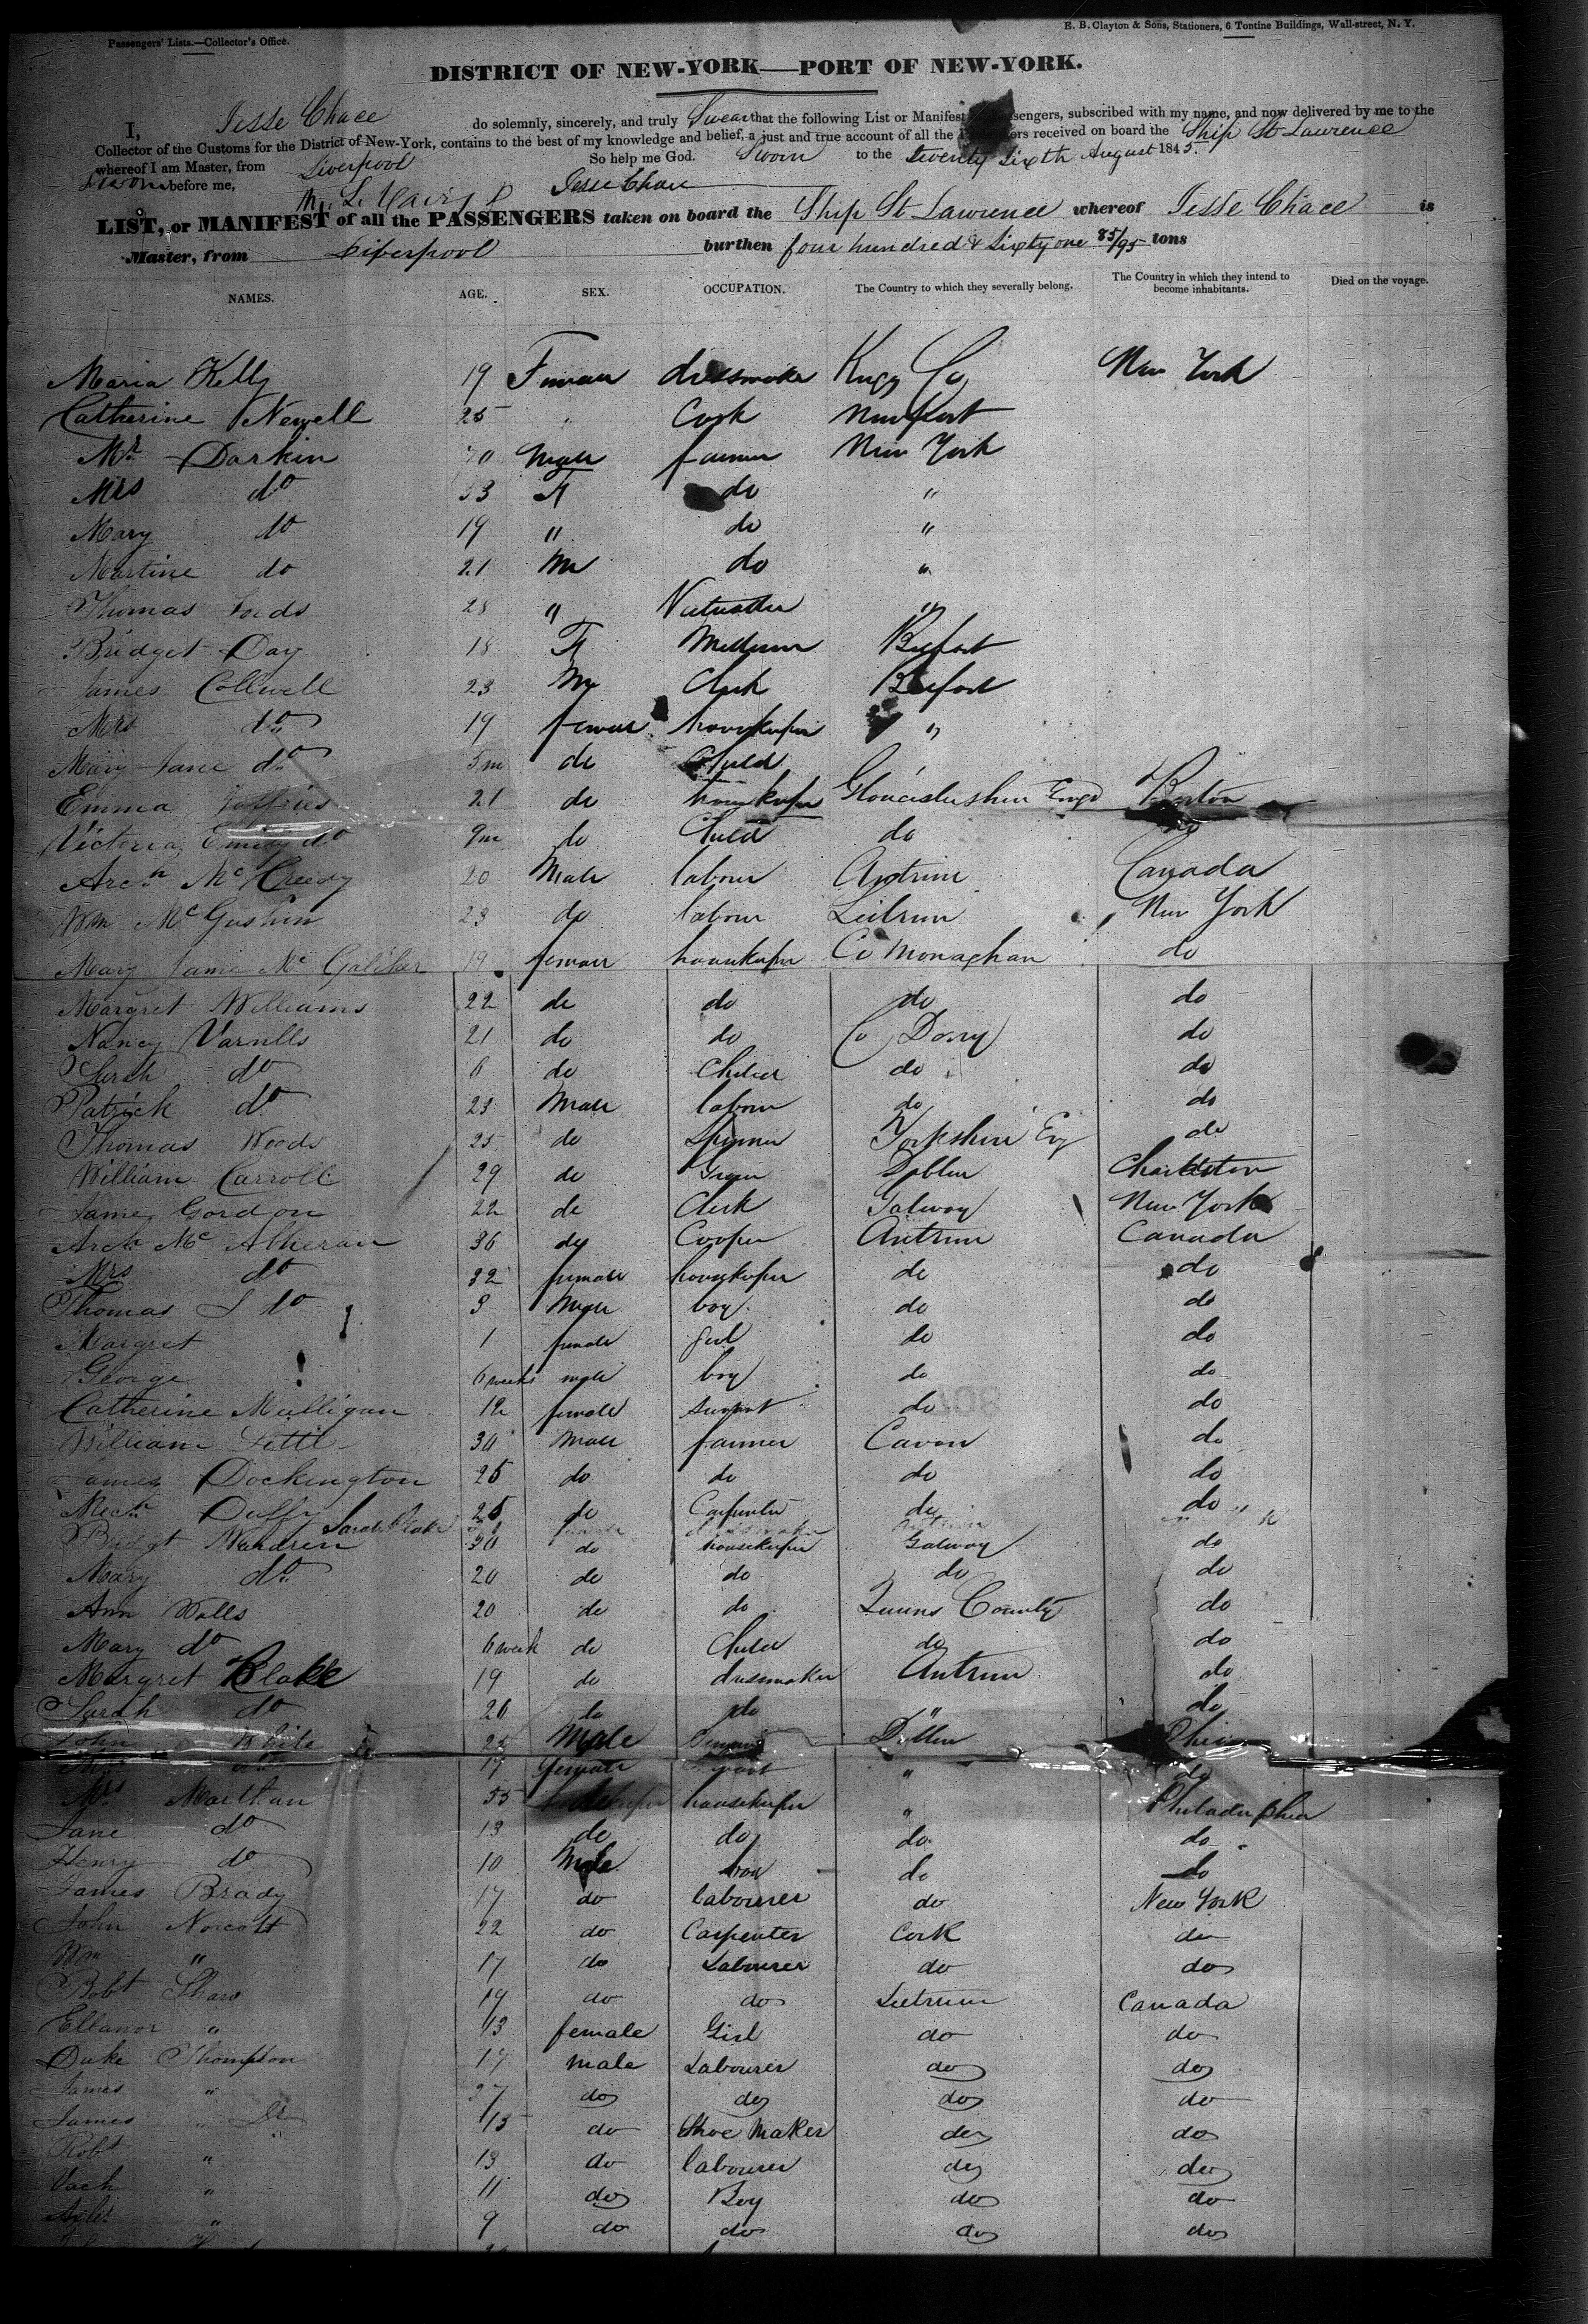 Passengers' Lists.—Collector's Office.
E. B. Clayton & Sons, Stationers, 6 Tontine Buildings, Wall-street, N. Y.
DISTRICT OF NEW-YORK—PORT OF NEW-YORK.
I, Jesse Chace do solemnly, sincerely, and truly Swear that the following List or Manifest Passengers, subscribed with my name, and now delivered by me to the
Collector of the Customs for the District of New-York, contains to the best of my knowledge and belief, a just and true account of all the Passengers received on board the Ship St Lawrence
whereof I am Master, from Liverpool So help me God. Sworn to the twenty sixth August 1845.
Sworn before me, Jesse Chace
LIST, or MANIFEST of all the PASSENGERS taken on board the Ship St Lawrence whereof Jesse Chace is
Master, from Liverpool burthen four hundred & Sixty one 85/95 tons
NAMES. AGE. SEX. OCCUPATION. The Country to which they severally belong. The Country in which they intend to become inhabitants. Died on the voyage.
Maria Kelly 19 Female dressmaker Co New York
Catherine Newell 25 " Cook Newport
Mr Darkin 70 Male farmer New York
Mrs do 53 F do "
Mary do 19 " do "
Martine do 21 M do "
Thomas 28 " "
Bridget Day 18 F Belfast
James Collwell 23 M Clerk Belfast
Mrs do 19 female housekeeper "
Mary Jane do 5m do Child
Emma Jeffries 21 do housekeeper Gloucestershire Engd Boston
Victoria Emily do 9m do Child do do
Archd McCreedy 20 Male labour Antrim Canada
Wm McGushin 23 do labour Leitrim New York
Mary Jane Mc 19 female housekeeper Co Monaghan do
Margret Williams 22 do do do do
Nancy Varnills 21 do do Co Derry do
Sarah do 6 do Child do do
Patrick do 23 Male labour do do
Thomas Woods 25 do Spinner Yorkshire Eng do
William Carroll 29 do Dublin Charleston
James Gordon 22 do Clerk Galway New York
Arch Mc Atheran 36 do Cooper Antrim Canada
Mrs do 32 female housekeeper do do
Thomas J do 3 Male boy do do
Margret 1 female girl do do
George 6 weeks male boy do do
Catherine Mulligan 12 female servant do do
William Little 30 Male farmer Cavan do
James Dockington 25 do do do do
Mich Duffy 25 do Carpenter do do
Sarah female dressmaker Antrim "
Bridgt Wandren 30 do housekeeper Galway do
Mary do 20 do do do do
Ann Walls 20 do do Queens County do
Mary do 6 week do Child do do
Margret Blake 19 do dressmaker Antrim do
Sarah do 26 do do " do
John White 25 Male Dublin
Mrs do 17 female " do
Mrs Marthan 55 housekeeper " Philadelphia
Jane do 13 do do do do
Henry do 10 Male boy do do
James Brady 17 do labourer do New York
John Norcott 22 do Carpenter Cork do
Wm " 17 do Labourer do do
Robt Shaw 19 do do Leetrum Canada
Ellanor " 13 female Girl do do
Duke Thompson 17 male Labourer do do
James " 37 do do do do
James " Jr 15 do Shoe Maker do do
Robt " 13 do labourer do do
" 11 do Boy do do
" 9 do do do do